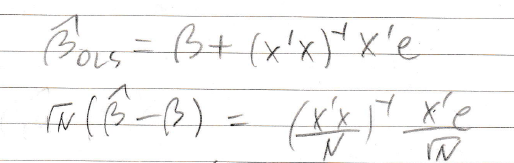 β̂_OLS = β + (x'x)⁻¹ x'e
√N (β̂ - β) = (x'x/N)⁻¹ x'e/√N